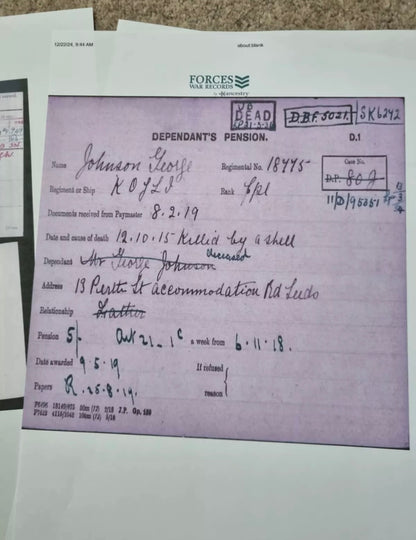 12/22/24, 9:44 AM about:blank
FORCES
WAR RECORDS
by ancestry
DEAD D.B.F. 5021. SK6242
DEPENDANT'S PENSION. D.1
Name Johnson George Regimental No. 18775 Case No.
Regiment or Ship K O Y L I Rank Cpl D.P.
Documents received from Paymaster 8.2.19
Date and cause of death 12.10.15 Killed by a shell
Dependant Mr George Johnson deceased
Address 13 Perth St accommodation Rd Leeds
Relationship Father
Pension 5/- Art 21-1c a week from 6.11.18.
Date awarded 9.5.19 If refused
Papers R. 26.8.19. reason